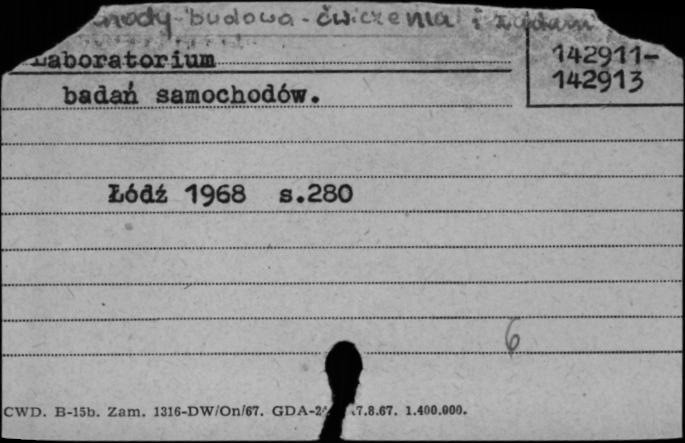 budowa - ćwiczenia i
Laboratorium
142911-
142913
badań samochodów.
Łódź 1968 s.280
6
CWD. B-15b. Zam. 1316-DW/On/67. GDA-2 .7.8.67. 1.400.000.